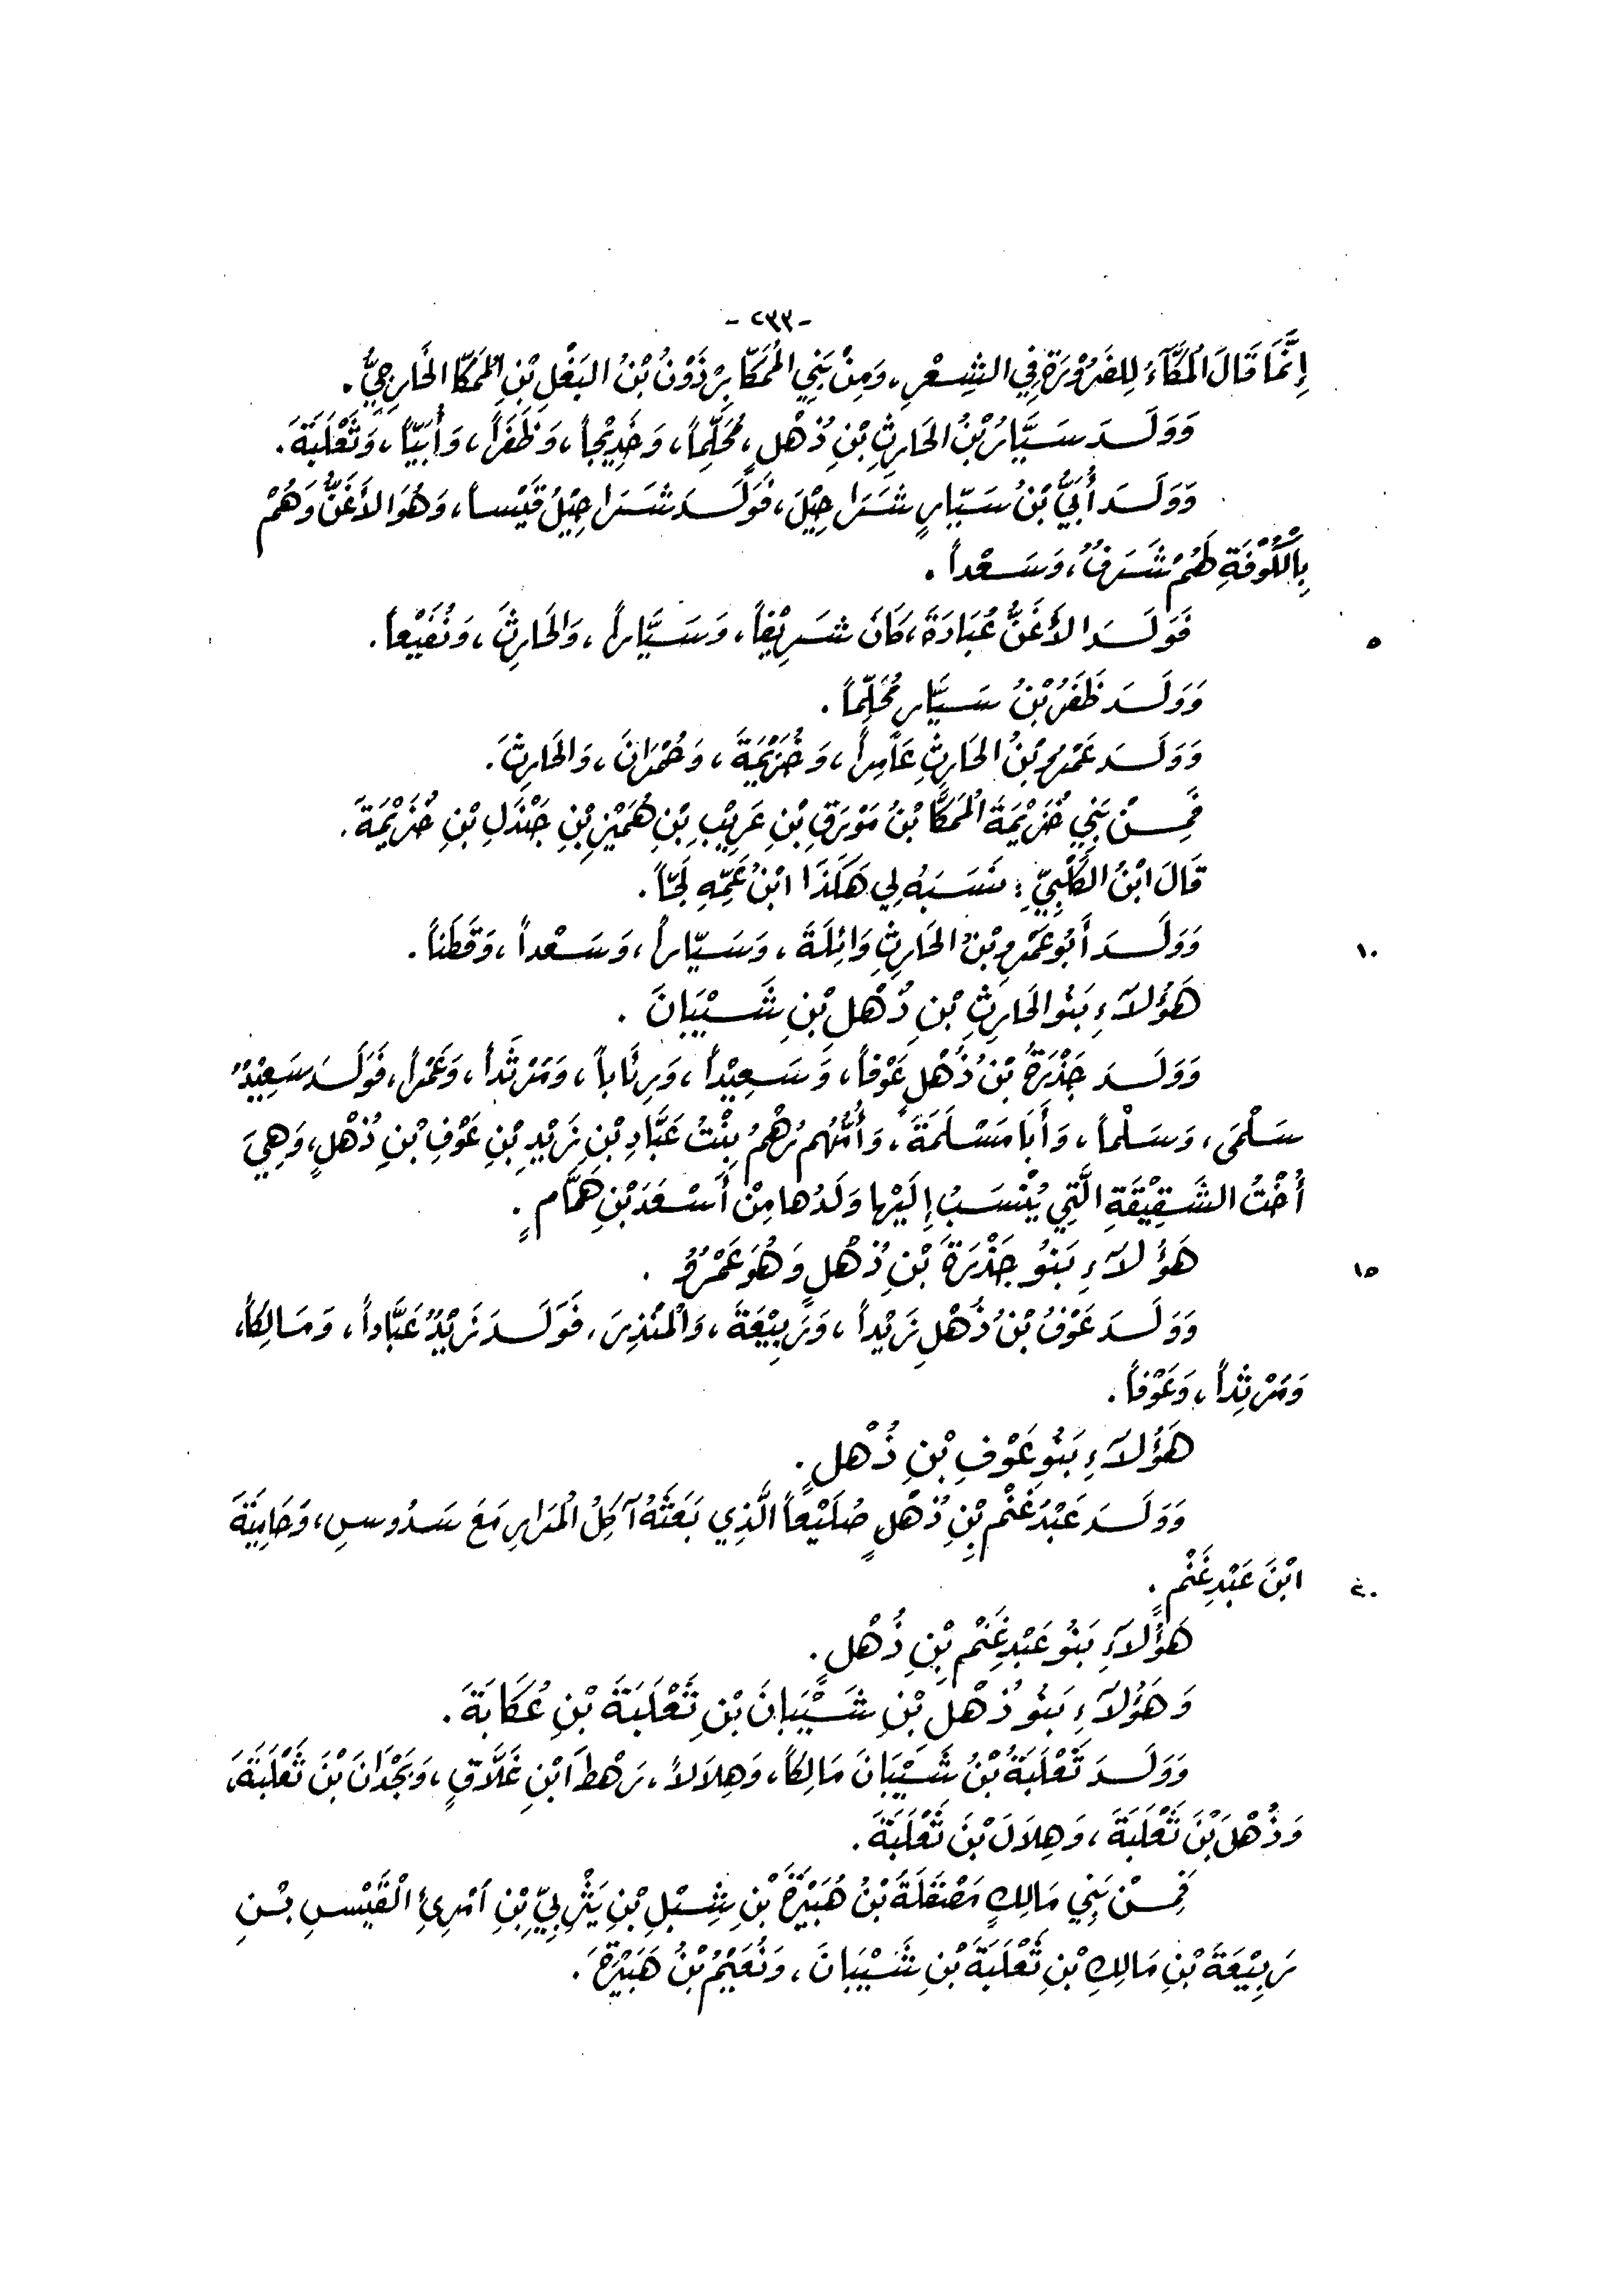 -٢٣٣-
إِنَّمَا قَالَ المُكَّاءَ لِلضَرُوْرَةِ فِي الشِعْرِ، وَمِنْ بَنِي المُمَكَّا بِرْذَوْنُ بْنُ البَغْلِ بْنِ المُمَكَّا الخَارِجِيُّ.
وَوَلَـدَ سَـيَّارُ بْنُ الحَارِثِ بْنِ ذُهْلٍ، مُحَلِّماً، وَخَدِيْجاً، وَظَفَراً، وَأُبَيّاً، وَثَعْلَبَةَ.
وَوَلَـدَ أُبَيُّ بْنُ سَـيّارٍ شَـرَاحِيْلَ، فَوَلَـدَ شَـرَاحِيْلُ قَيْساً، وَهُوَ الأَغَنُّ وَهُمْ
بِالْكُوْفَةِ لَهُمْ شَـرَفٌ، وَسَـعْداً.
٥ فَوَلَـدَ الأَغَنُّ عُبَادَةَ، كَانَ شَـرِيْفاً، وَسَـيَّاراً، وَالحَارِثَ، وَنُفَيْعاً.
وَوَلَـدَ ظَفَرُ بْنُ سَـيَّارٍ مُحَلِّماً.
وَوَلَـدَ عَمْرُو بْنُ الحَارِثِ عَامِراً، وَخُزَيْمَةَ، وَحُمْرَانَ، وَالحَارِثَ.
فَمِـنْ بَنِي خُزَيْمَةَ المُمَكَّا بْنُ مَوْرَقِ بْنِ عَرِيْبِ بْنِ هُمَيْزِ بْنِ جَنْدَلِ بْنِ خُزَيْمَةَ.
قَالَ ابْنُ الكَلْبِيِّ: نَسَـبَهُ لِي هَكَذَا ابْنُ عَمِّهِ لَحّاً.
١٠ وَوَلَـدَ أَبُو عَمْرِو بْنُ الحَارِثِ وَائِلَةَ، وَسَـيّاراً، وَسَـعْداً، وَقَطَناً.
هَؤُلَآءِ بَنُو الحَارِثِ بْنِ ذُهْلِ بْنِ شَـيْبَانَ.
وَوَلَـدَ جَذْرَةُ بْنُ ذُهْلٍ عَوْفاً، وَسَـعِيْداً، وَرِئَاباً، وَمَرْثَداً، وَعَمْراً، فَوَلَـدَ سَعِيْدٌ
سَـلْمَى، وَسَـلْماً، وَأَبَا مَسْـلَمَةَ، وَأُمُّهُم رُهْمُ بِنْتُ عَبَّادِ بْنِ زَيْدِ بْنِ عَوْفِ بْنِ ذُهْلٍ، وَهِيَ
أُخْتُ الشَـقِيْقَةِ الَّتِي يُنْسَـبُ إِلَيْها وَلَدُها مِنْ أَسْـعَدَ بْنِ هَمَّامٍ.
١٥ هَؤُلَآءِ بَنُو جَذْرَةَ بْنِ ذُهْلٍ وَهُوَ عَمْرٌو.
وَوَلَـدَ عَوْفُ بْنُ ذُهْلٍ زَيْداً، وَرَبِيْعَةَ، وَالْمُنْذِرَ، فَوَلَـدَ زَيْدٌ عَبَّاداً، وَمَالِكاً،
وَمَرْثِداً، وَعَوْفاً.
هَؤُلَآءِ بَنُو عَوْفِ بْنِ ذُهْلٍ.
وَوَلَـدَ عَبْدُ غَنْمِ بْنِ ذُهْلٍ صُلَيْعاً الَّذِي بَعَثَهُ آكِلُ الْمُرَارِ مَعَ سَـدُوسٍ، وَحَامِيَةَ
٢٠ ابْنَ عَبْدِ غَنْمٍ.
هَؤُلَآءِ بَنُو عَبْدِ غَنْمِ بْنِ ذُهْلٍ.
وَهَؤُلَآءِ بَنُو ذُهْلِ بْنِ شَـيْبَانَ بْنِ ثَعْلَبَةَ بْنِ عُكَابَةَ.
وَوَلَـدَ ثَعْلَبَةُ بْنُ شَـيْبَانَ مَالِكاً، وَهِلَالاً، رَهْطَ ابْنِ غَلَّاقٍ، وَبَجْدَانَ بْنَ ثَعْلَبَةَ،
وَذُهْلَ بْنَ ثَعْلَبَةَ، وَهِلَالَ بْنَ ثَعْلَبَةَ.
فَمِـنْ بَنِي مَالِكٍ مَصْقَلَةُ بْنُ هُبَيْرَةَ بْنِ شِـبْلِ بْنِ يَثْرِبِيِّ بْنِ امْرِئِ الْقَيْسِ بْـنِ
رَبِيْعَةَ بْنِ مَالِكِ بْنِ ثَعْلَبَةَ بْنِ شَـيْبَانَ، وَنُعَيْمُ بْنُ هُبَيْرَةَ.